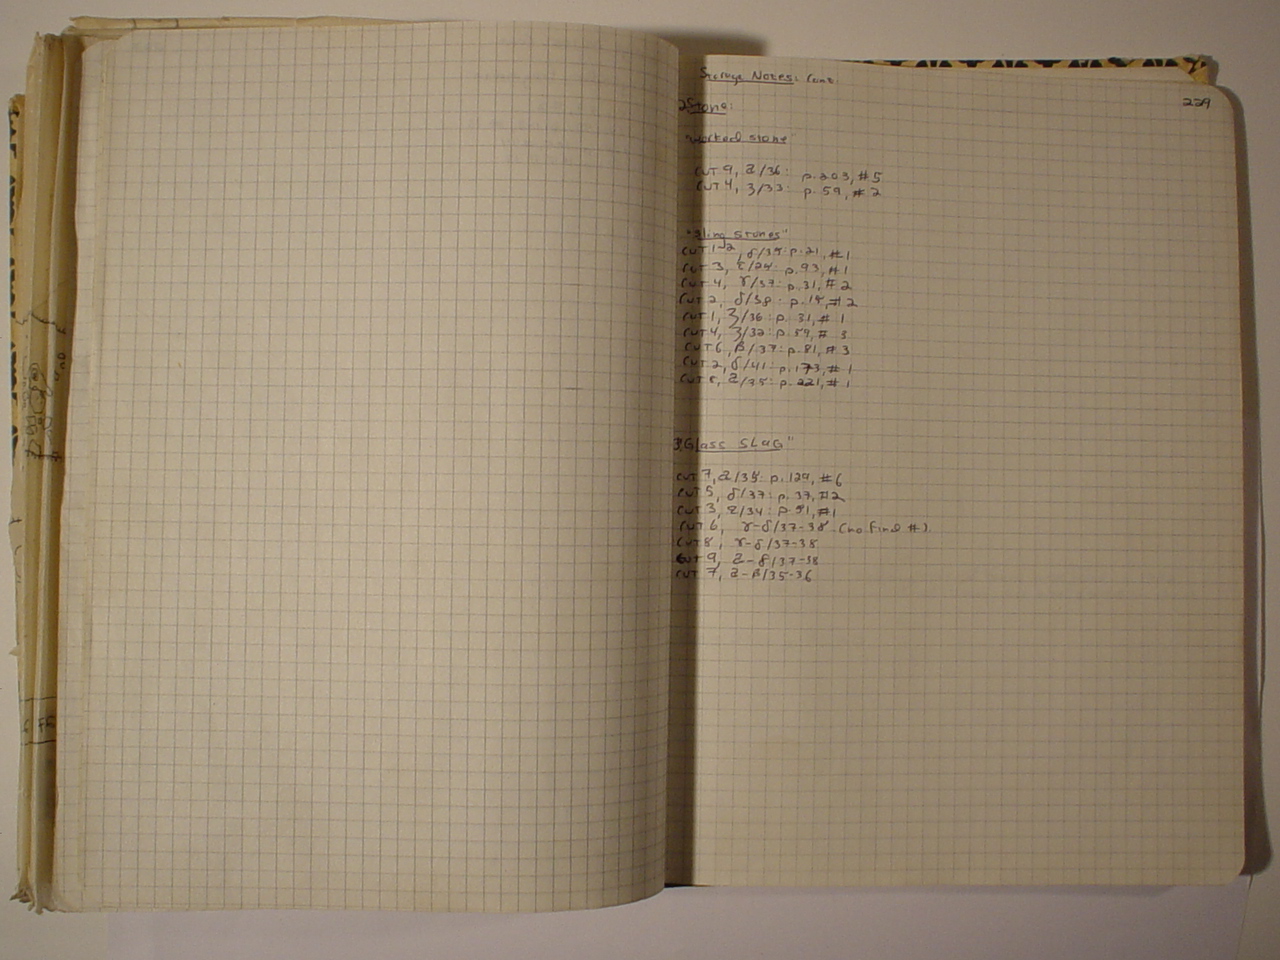 Storage Notes: Cont.
229
2 Stone:
"Worked stone"
CUT 9, a/36: p. 203, #5
CUT 4, ζ/33: p. 59, #2
"Sling stones"
CUT 1-2, δ/35: p. 21, #1
CUT 3, ε/34: p. 93, #1
CUT 4, γ/37: p. 31, #2
CUT 2, δ/38: p. 19, #2
CUT 1, ζ/36: p. 31, #1
CUT 4, ζ/32: p. 59, # 3
CUT 6, β/37: p. 81, #3
CUT 2, δ/41: p. 173, #1
CUT 8, a/35: p. 221, #1
3 "Glass SLAG"
CUT 7, a/35: p. 129, #6
CUT 5, δ/37: p. 37, #2
CUT 3, ε/34: p. 91, #1
CUT 6, γ-δ/37-38 (no find #)
CUT 8, γ-δ/37-38
CUT 9, a-δ/37-38
CUT 7, a-β/35-36